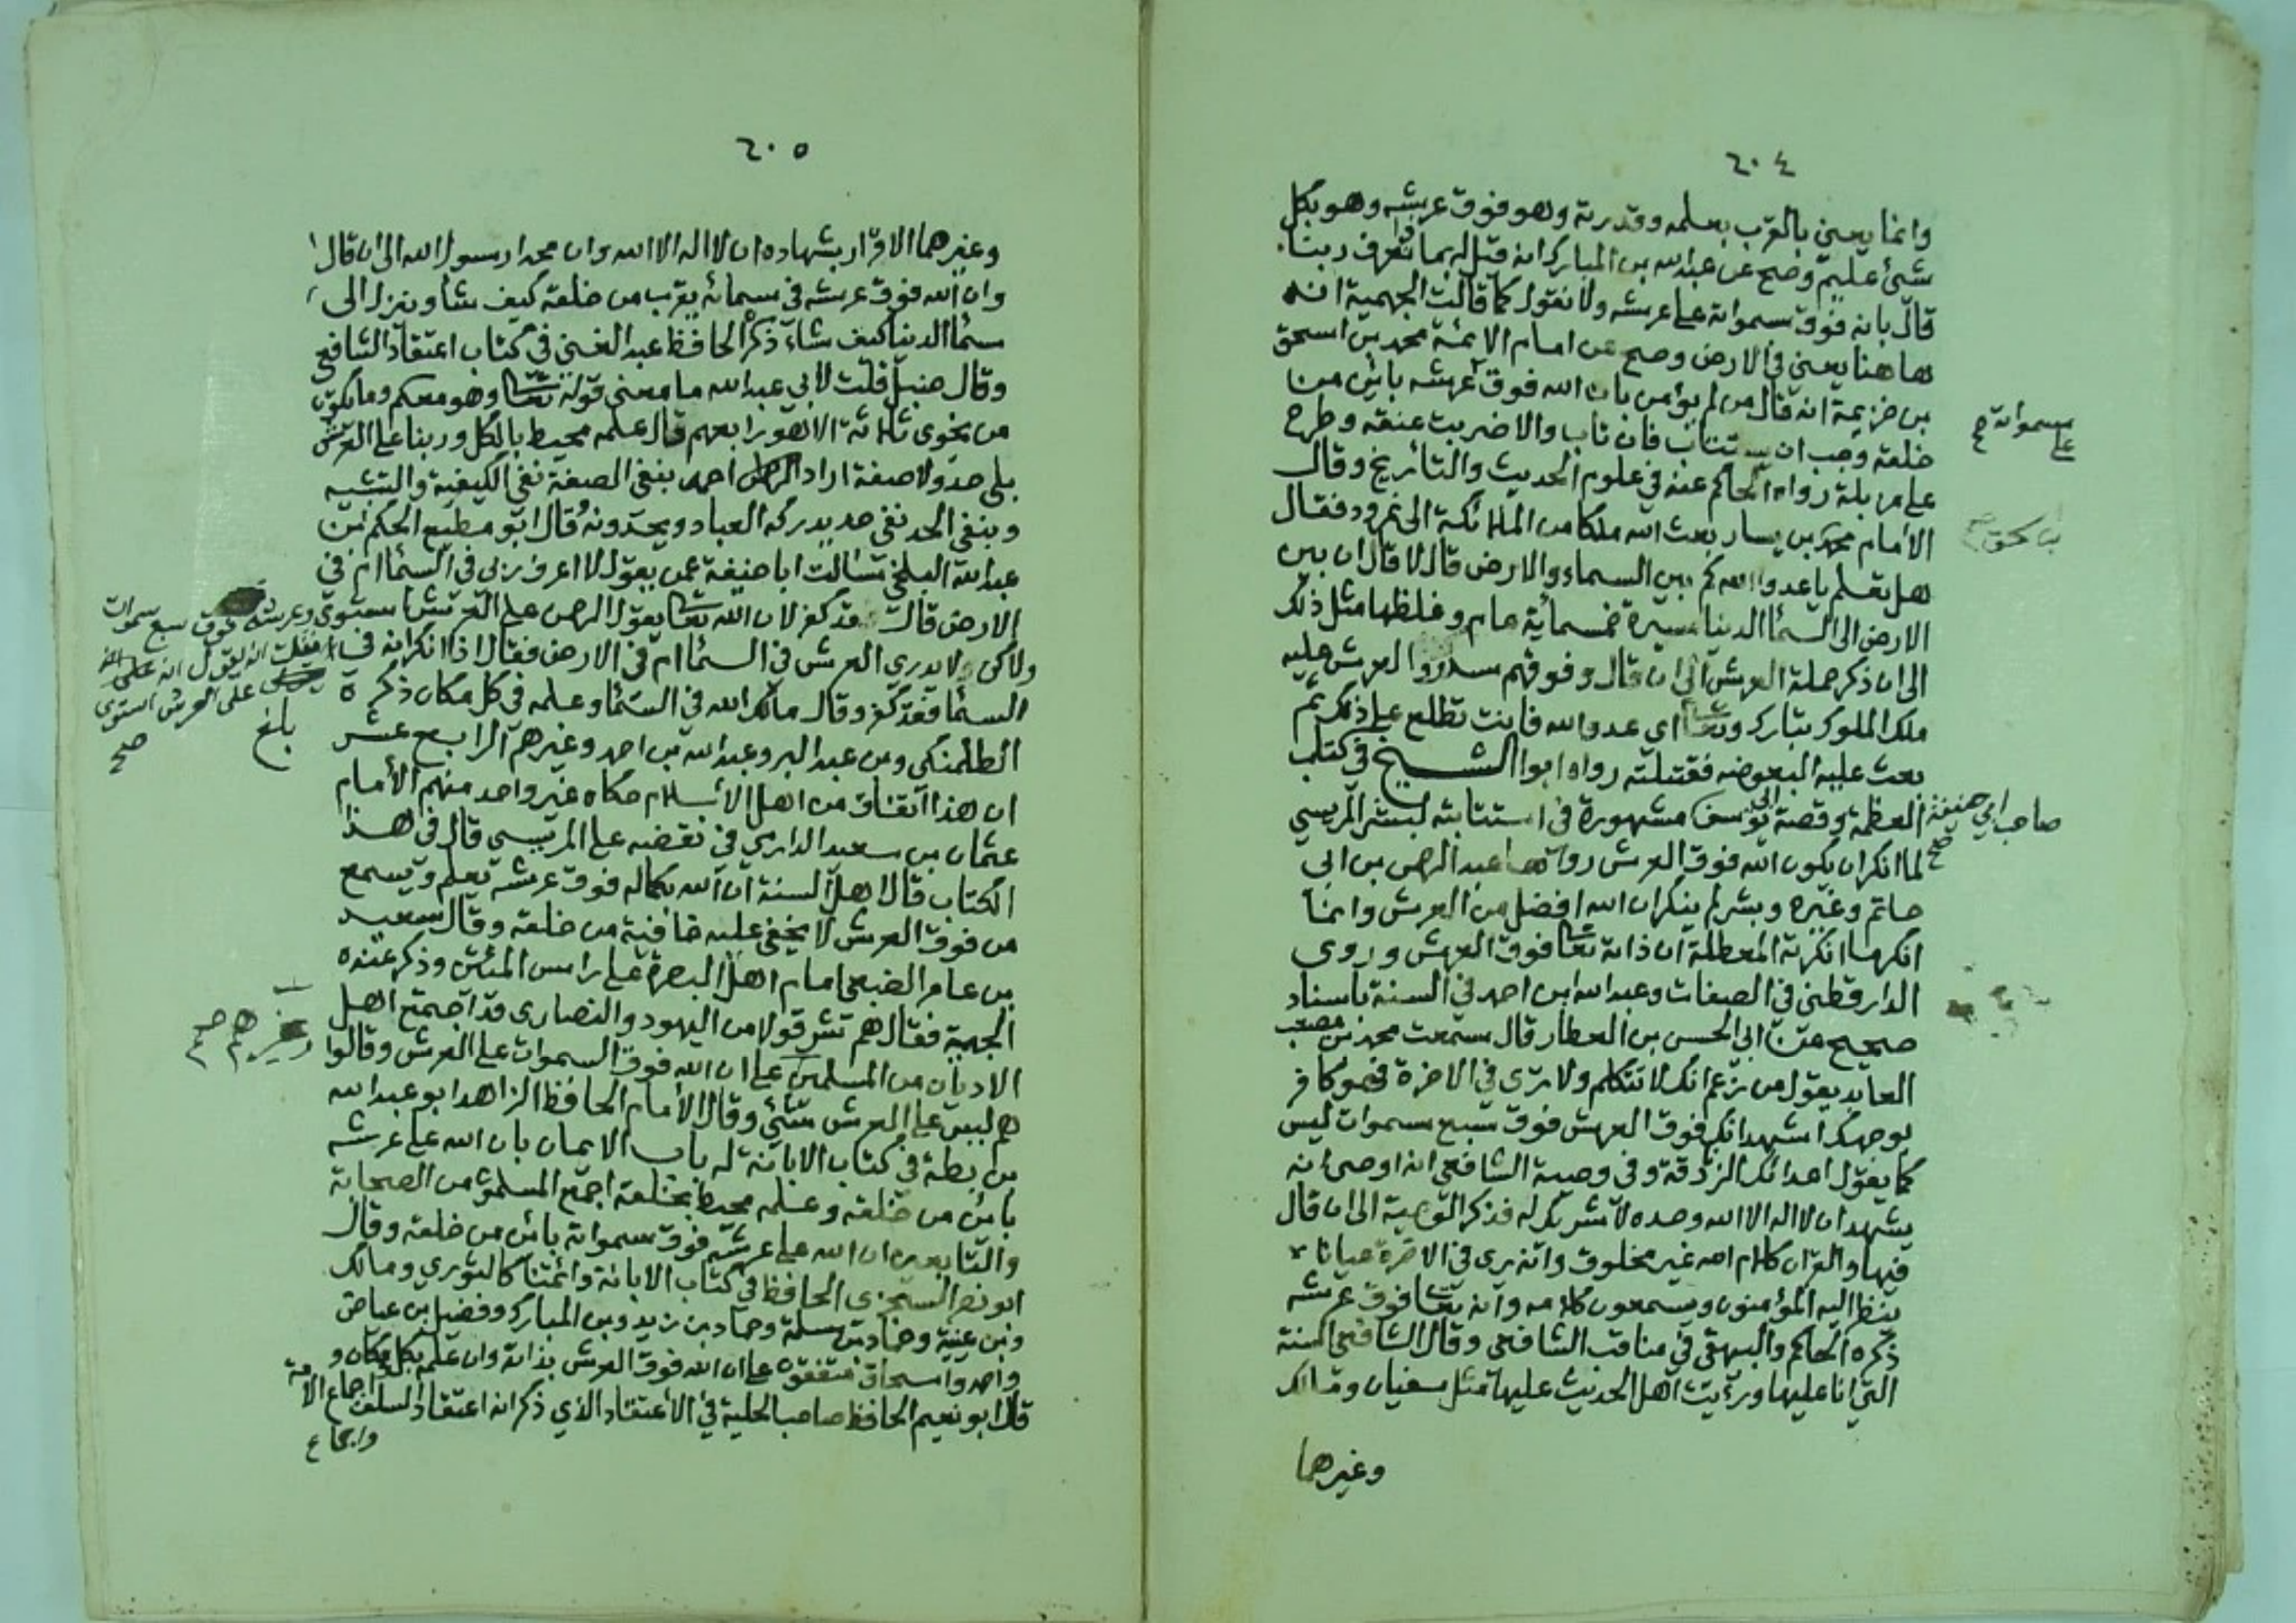 ٢٠٤
وانما يعني بالقرب بعلمه وقدرته وهو فوق عرشه وهو بكل
شئ عليم وصح عن عبدالله بن المبارك انه قيل له بماذا نعرف ربنا
قال بانه فوق سمواته على عرشه ولا نقول كما قالت الجهمية انه
هاهنا يعني في الارض وصح عن امام الائمة محمد بن اسحق
بن خزيمة انه قال من لم يؤمن بان الله فوق عرشه بائن من
سمواته على صح
خلقه وجب ان يستتاب فان تاب والا ضربت عنقه وطرح
على مزبلة رواه الحاكم عنه في علوم الحديث والتأريخ وقال
الامام محمد بن يسار بعث الله ملكا من الملائكة الى نمرود فقال
هل تعلم يا عدو الله كم بين السماء والارض قال لا قال ان بين
الارض الى السما الدنيا مسيرة خمسمائة عام وغلظها مثل ذلك
الى ان ذكر حملة العرش الى ان قال وفوقهم العرش عليه
ملك الملوك تبارك وتعا اي عدو الله فانت تطلع على ذلك ثم
بعث عليه البعوضه فقتلته رواه ابوا الشيخ في كتاب
العظمة وقصة ابي يوسف مشهورة في استتابته لبشر المريسي
صاحب ابي حنيفة صح
لما انكر ان يكون الله فوق العرش رواها عبد الرحمن بن ابي
حاتم وغيره وبشر لم ينكر ان الله افضل من العرش وانما
انكر ما انكرته المعطلة ان ذاته تعا فوق العرش وروى
الدارقطني في الصفات وعبدالله ابن احمد في السنة باسناد
صحيح عن ابي الحسن بن العطار قال سمعت محمد بن مصعب
العابد يقول من زعم انك لا تتكلم ولا ترى في الاخرة فهو كافر
بوجهك اشهد انك فوق العرش فوق سبع سموات ليس
كما يقول اعدائك الزندقة وفي وصية الشافعي انه اوصى انه
يشهد ان لا اله الا الله وحده لا شريك له فذكر الوصية الى ان قال
فيها والقران كلام الله غير مخلوق وانه يرى في الاخرة عيانا
ينظر اليه المؤمنون ويسمعون كلامه وانه تعا فوق عرشه
ذكره الحاكم والبيهقي في مناقب الشافعي وقال الشافعي السنة
التي انا عليها ورأيت اهل الحديث عليها مثل سفيان ومالك
وغيرهما
٢٠٥
وغيرهما الاقرار بشهادة ان لا اله الا الله وان محمدا رسول الله الى ان قال
وان الله فوق عرشه في سمائه يقرب من خلقه كيف شا وينزل الى
سما الدنيا كيف شاء ذكر الحافظ عبد الغني في كتاب اعتقاد الشافعي
وقال حنبل قلت لابي عبدالله ما معنى قوله تعا وهو معكم وما يكون
من نجوى ثلاثة الا هو رابعهم قال علمه محيط بالكل وربنا على العرش
بلى حد ولا صفة اراد احمد بنفي الصفة نفي الكيفية والتشبيه
وبنفي الحد نفي حد يدركه العباد ويحدونه وقال ابو مطيع الحكم ابن
عبدالله البلخي سالت ابا حنيفة عمن يقول لا اعرف ربي في السما ام في
الارض قالت قد كفر لان الله تعا يقول الرحمن على العرش استوى وعرشه فوق سبع سموات
فقلت انه يقول انه على العرش استوى
صح
ولاكن لا يدري العرش في السما ام في الارض فقال اذا انكر انه في
السما فقد كفر وقال مالك الله في السما وعلمه في كل مكان ذكره
بلغ
الطلمنكي وبن عبد البر وعبدالله بن احمد وغيرهم الرابع عشر
ان هذا اتفاق من اهل الاسلام حكاه غير واحد منهم الامام
عثمان بن سعيد الدارمي في نقضه على المريسي قال في هذا
الكتاب قال اهل السنة ان الله بكماله فوق عرشه يعلم ويسمع
من فوق العرش لا يخفى عليه خافية من خلقه وقال سعيد
بن عامر الضبعي امام اهل البصرة على راس المئين وذكر عنده
الجهمية فقال هم شر قولا من اليهود والنصارى قد اجمع اهل
الاديان من المسلمين على ان الله فوق السموات على العرش وقالوا
وغيرهم صح
هم ليس على العرش شئي وقال الامام الحافظ الزاهد ابو عبدالله
بن بطة في كتاب الابانة له باب الايمان بان الله على عرشه
بائن من خلقه وعلمه محيط بخلقه اجمع المسلمون من الصحابة
والتابعين ان الله على عرشه فوق سمواته بائن من خلقه وقال
ابو نصر السجزي الحافظ في كتاب الابانة وائمتنا كالثوري ومالك
وبن عيينة وحماد بن سلمة وحماد بن زيد وبن المبارك وفضيل بن عياض
واحمد واسحاق متفقون على ان الله فوق العرش بذاته وان علمه بكل مكان و
قال ابو نعيم الحافظ صاحب الحلية في الاعتقاد الذي ذكر انه اعتقاد السلف واجماع الامة
واجماع